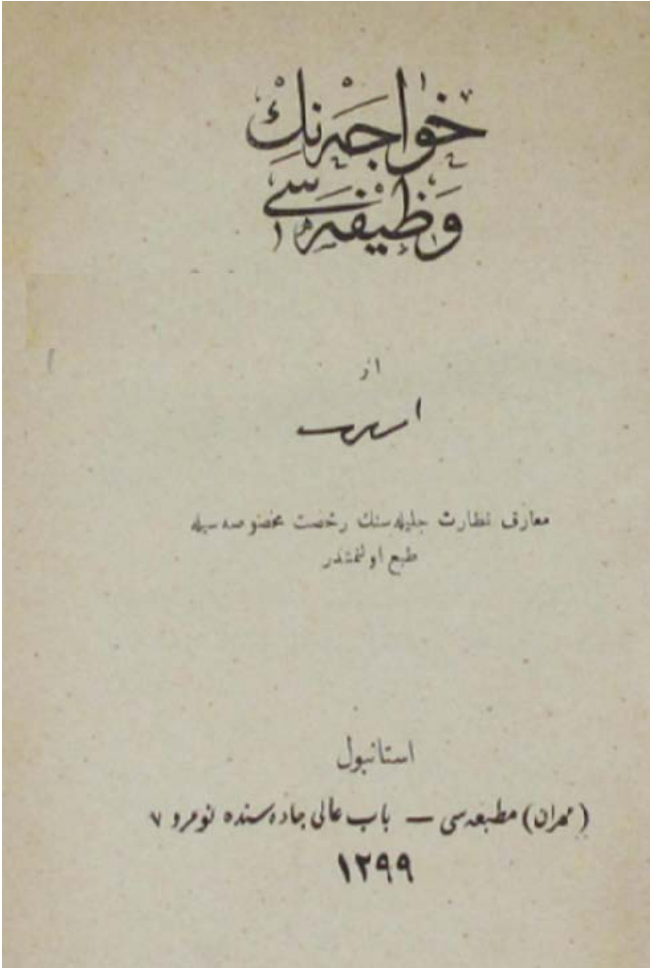 خواجه‌نڭ
وظیفه‌سی
از
معارف نظارت جلیله‌سنك رخصت مخصوصه‌سیله
طبع اولنمشدر
استانبول
(مهران) مطبعه‌سی — باب عالی جاده‌سنده نومرو ٧
١٢٩٩